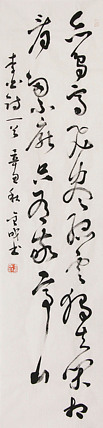 众鸟高飞尽孤云独去闲相
看两不厌只有敬亭山
李白诗一首 辛丑秋 书